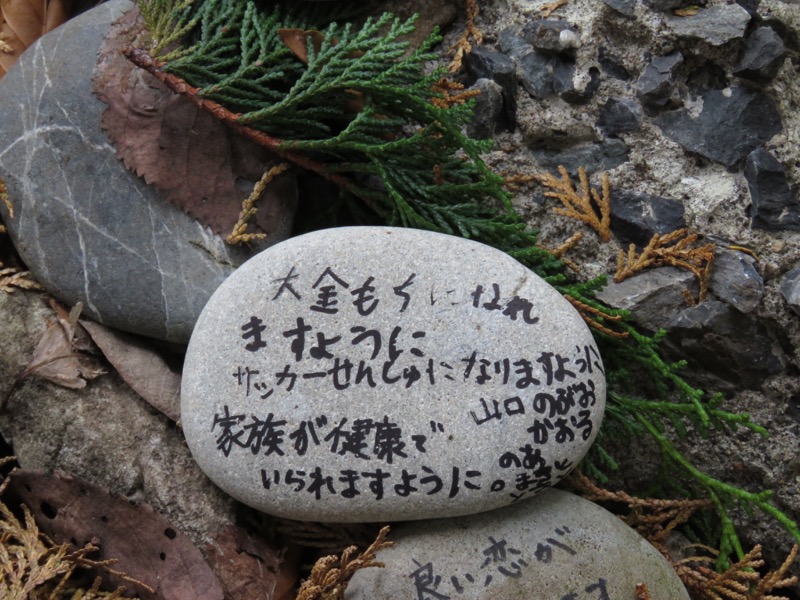 大金もちになれ
ますように
サッカーせんしゅになりますように
家族が健康で
いられますように。
山口
のぶお
かおる
良い恋が